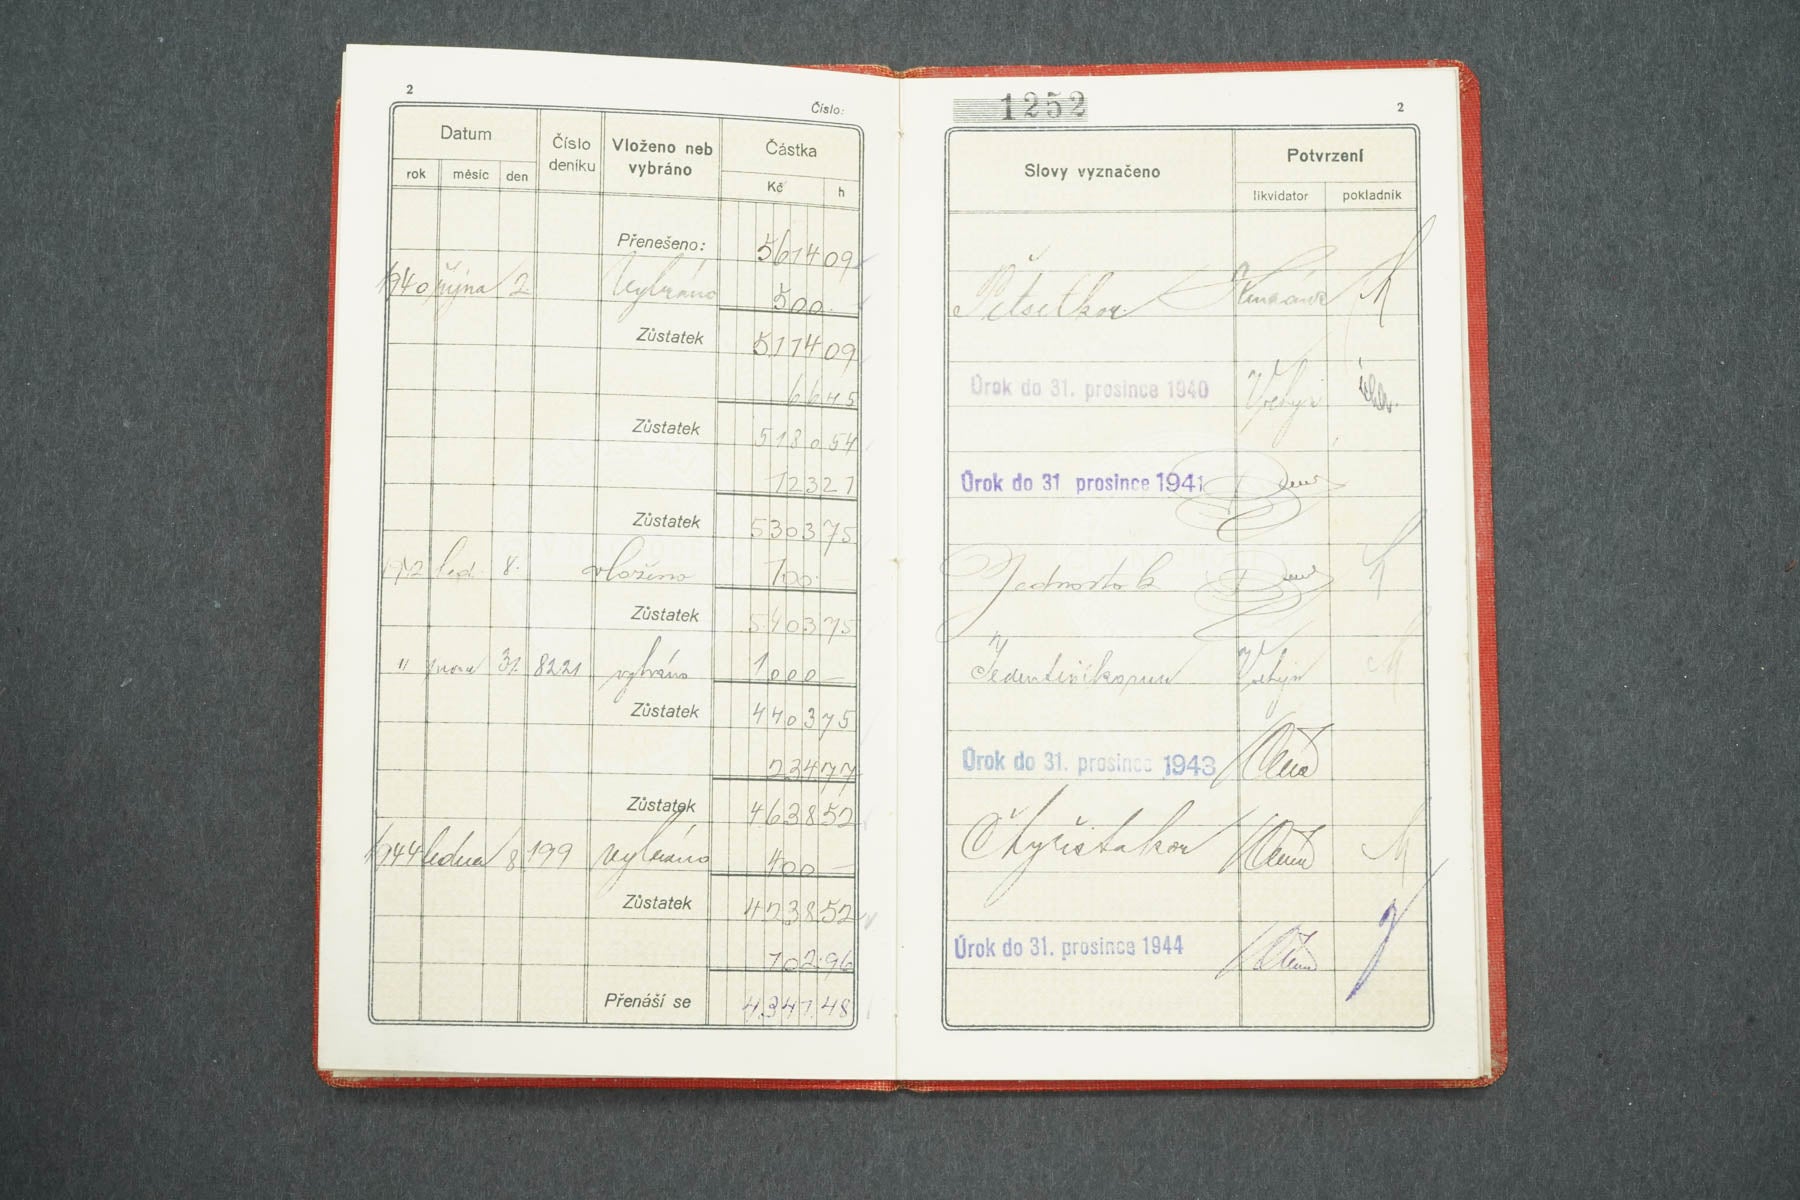 2
Číslo:
Datum
Číslo deníku
Vloženo neb vybráno
Částka
rok
měsíc
den
Kč
h
Přenešeno: 5614 09
1940 října 2. Vybráno 500.—
Zůstatek 5114 09
66 45
Zůstatek 5180 54
123 21
Zůstatek 5303 75
led. 8. vloženo 100.—
Zůstatek 5403 75
" 31. 8221 vybráno 1000 —
Zůstatek 4403 75
234 77
Zůstatek 4638 52
1944 ledna 8. 199 vybráno 400 —
Zůstatek 4238 52
102.96
Přenáší se 4.341.48
1252
2
Slovy vyznačeno
Potvrzení
likvidator
pokladník
Pětsetkor.
Úrok do 31. prosince 1940
Úrok do 31 prosince 1941
Jednosto k
Úrok do 31. prosince 1943
Čtyřistakor
Úrok do 31. prosince 1944